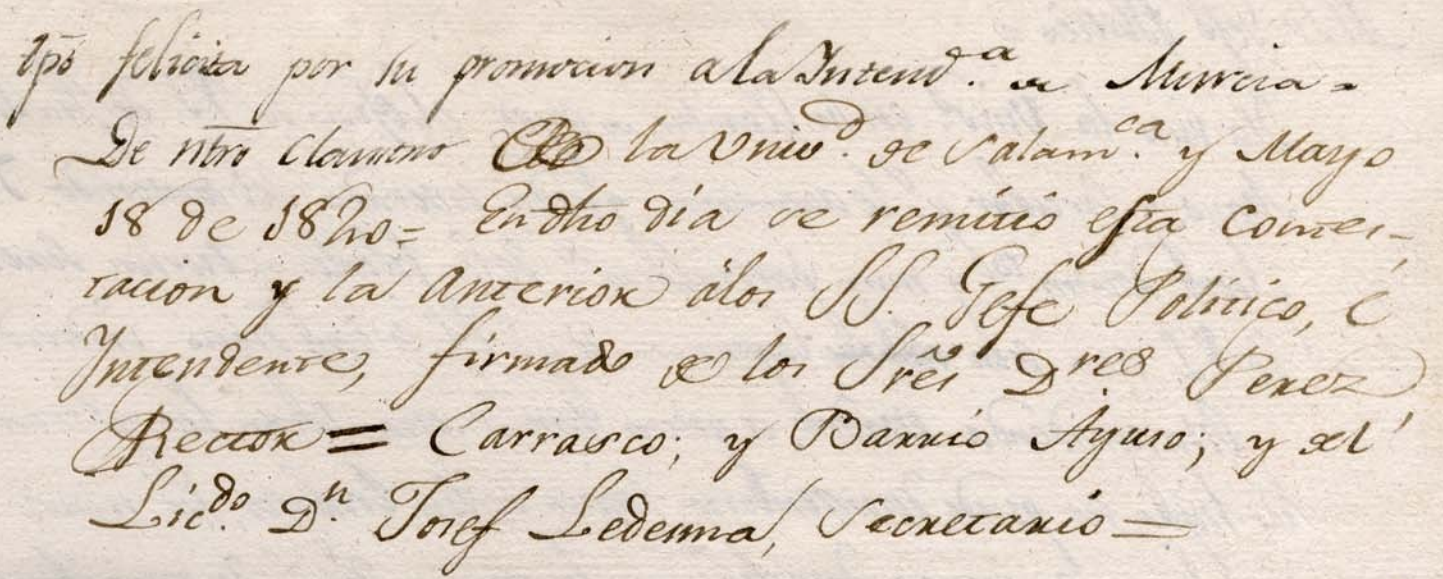 tpō felicita por su promocion a la Intend.ª de Murcia =
De ntro claustro de la Univ.d de Salam.ca y Mayo
18 de 1820 = En dho dia se remitió esta contes-
tacion y la anterior á los SS. Gefe Politico, é
Intendente, firmado de los Srēs D.res Perez
Rector = Carrasco; y Barrio Ayuso; y del
Lic.do D.n Josef Ledesma, Secretario =